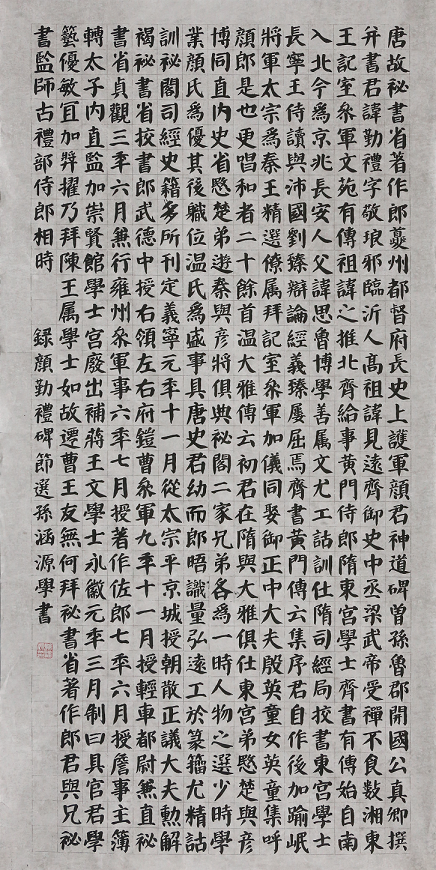 唐故祕書省著作郎夔州都督府長史上護軍顏君神道碑曾孫魯郡開國公真卿撰
并書君諱勤禮字敬琅邪臨沂人高祖諱見遠齊御史中丞梁武帝受禪不食數湘東
王記室參軍文苑有傳祖諱之推北齊給事黃門侍郎隋東宮學士齊書有傳始自南
入北今為京兆長安人父諱思魯博學善属文尤工詁訓仕隋司經局挍書東宮學士
長寧王侍讀與沛國劉臻辯論經義臻屢屈焉齊書黃門傳云集序君自作後加踰岷
將軍太宗為秦王精選僚属拜記室參軍加儀同娶御正中大夫殷英童女英童集呼
顏郎是也更唱和者二十餘首温大雅傳云初君在隋與大雅俱仕東宮弟愍楚與彥
博同直内史省愍楚弟遊秦與彥將俱典祕閣二家兄弟各為一時人物之選少時學
業顏氏為優其後職位温氏為盛事具唐史君幼而郎晤識量弘遠工於篆籀尤精詁
訓祕閣司經史籍多所刊定義寧元年十一月從太宗平京城授朝散正議大夫勳解
褐祕書省挍書郎武德中授右領左右府鎧曹參軍九年十一月授輕車都尉兼直祕
書省貞觀三年六月兼行雍州參軍事六年七月授著作佐郎七年六月授詹事主簿
轉太子内直監加崇賢館學士宮廢出補蔣王文學士永徽元年三月制曰具官君學
藝優敏宜加弉擢乃拜陳王属學士如故遷曹王友無何拜祕書省著作郎君與兄祕
書監師古禮部侍郎相時 錄顏勤禮碑節選孫涵源學書